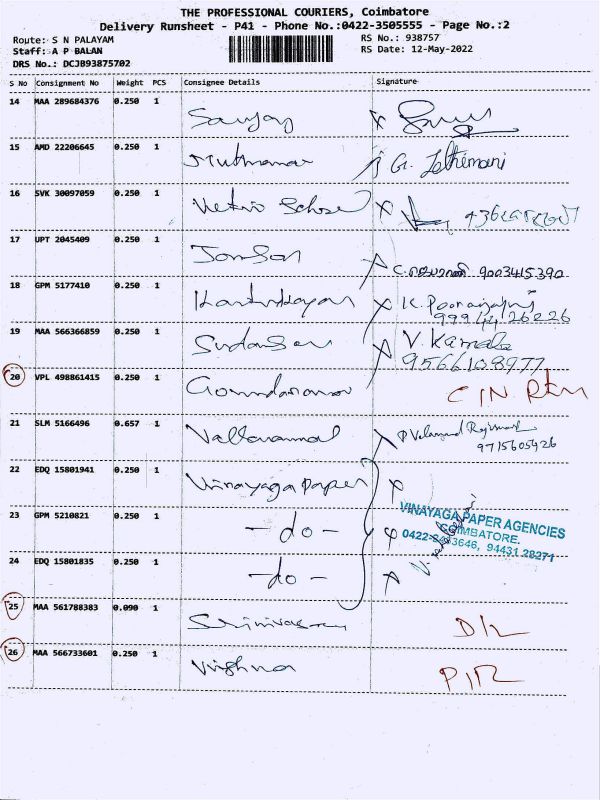 THE PROFESSIONAL COURIERS, Coimbatore
Delivery Runsheet - P41 - Phone No.:0422-3505555 - Page No.:2
Route: S N PALAYAM
RS No.: 938757
Staff: A P BALAN
RS Date: 12-May-2022
DRS No.: DCJB93875702
S No Consignment No Weight PCS Consignee Details Signature
14 MAA 289684376 0.250 1 Sanjay
15 AMD 22206645 0.250 1
16 SVK 30097059 0.250 1
17 UPT 2045409 0.250 1 Jonson
9003415390
18 GPM 5177410 0.250 1 Karthikayan K.
99944 26226
19 MAA 566366859 0.250 1 Sudarsan V. Kamala
9566108977
20 VPL 498861415 0.250 1
21 SLM 5166496 0.657 1 Valliammal
9715605426
22 EDQ 15801941 0.250 1 Vinayaga Paper
23 GPM 5210821 0.250 1 -do-
VINAYAGA PAPER AGENCIES
COIMBATORE.
94431 28271
24 EDQ 15801835 0.250 1 -do-
25 MAA 561788383 0.090 1 Srinivasan D/L
26 MAA 566733601 0.250 1 Krishna